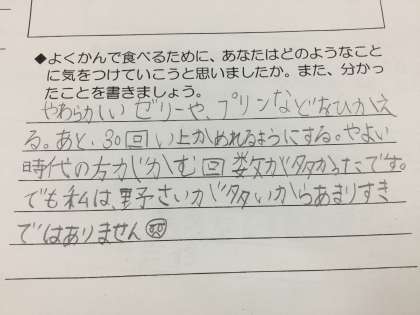 ◆よくかんで食べるために、あなたはどのようなこと
に気をつけていこうと思いましたか。また、分かっ
たことを書きましょう。
やわらかしいゼリーや、プリンなどをひかえ
る。あと、30回い上かめれるようにする。やよい
時代の方がかむ回数が多かったです。
でも私は、野さいが多いからあまりすき
ではありません